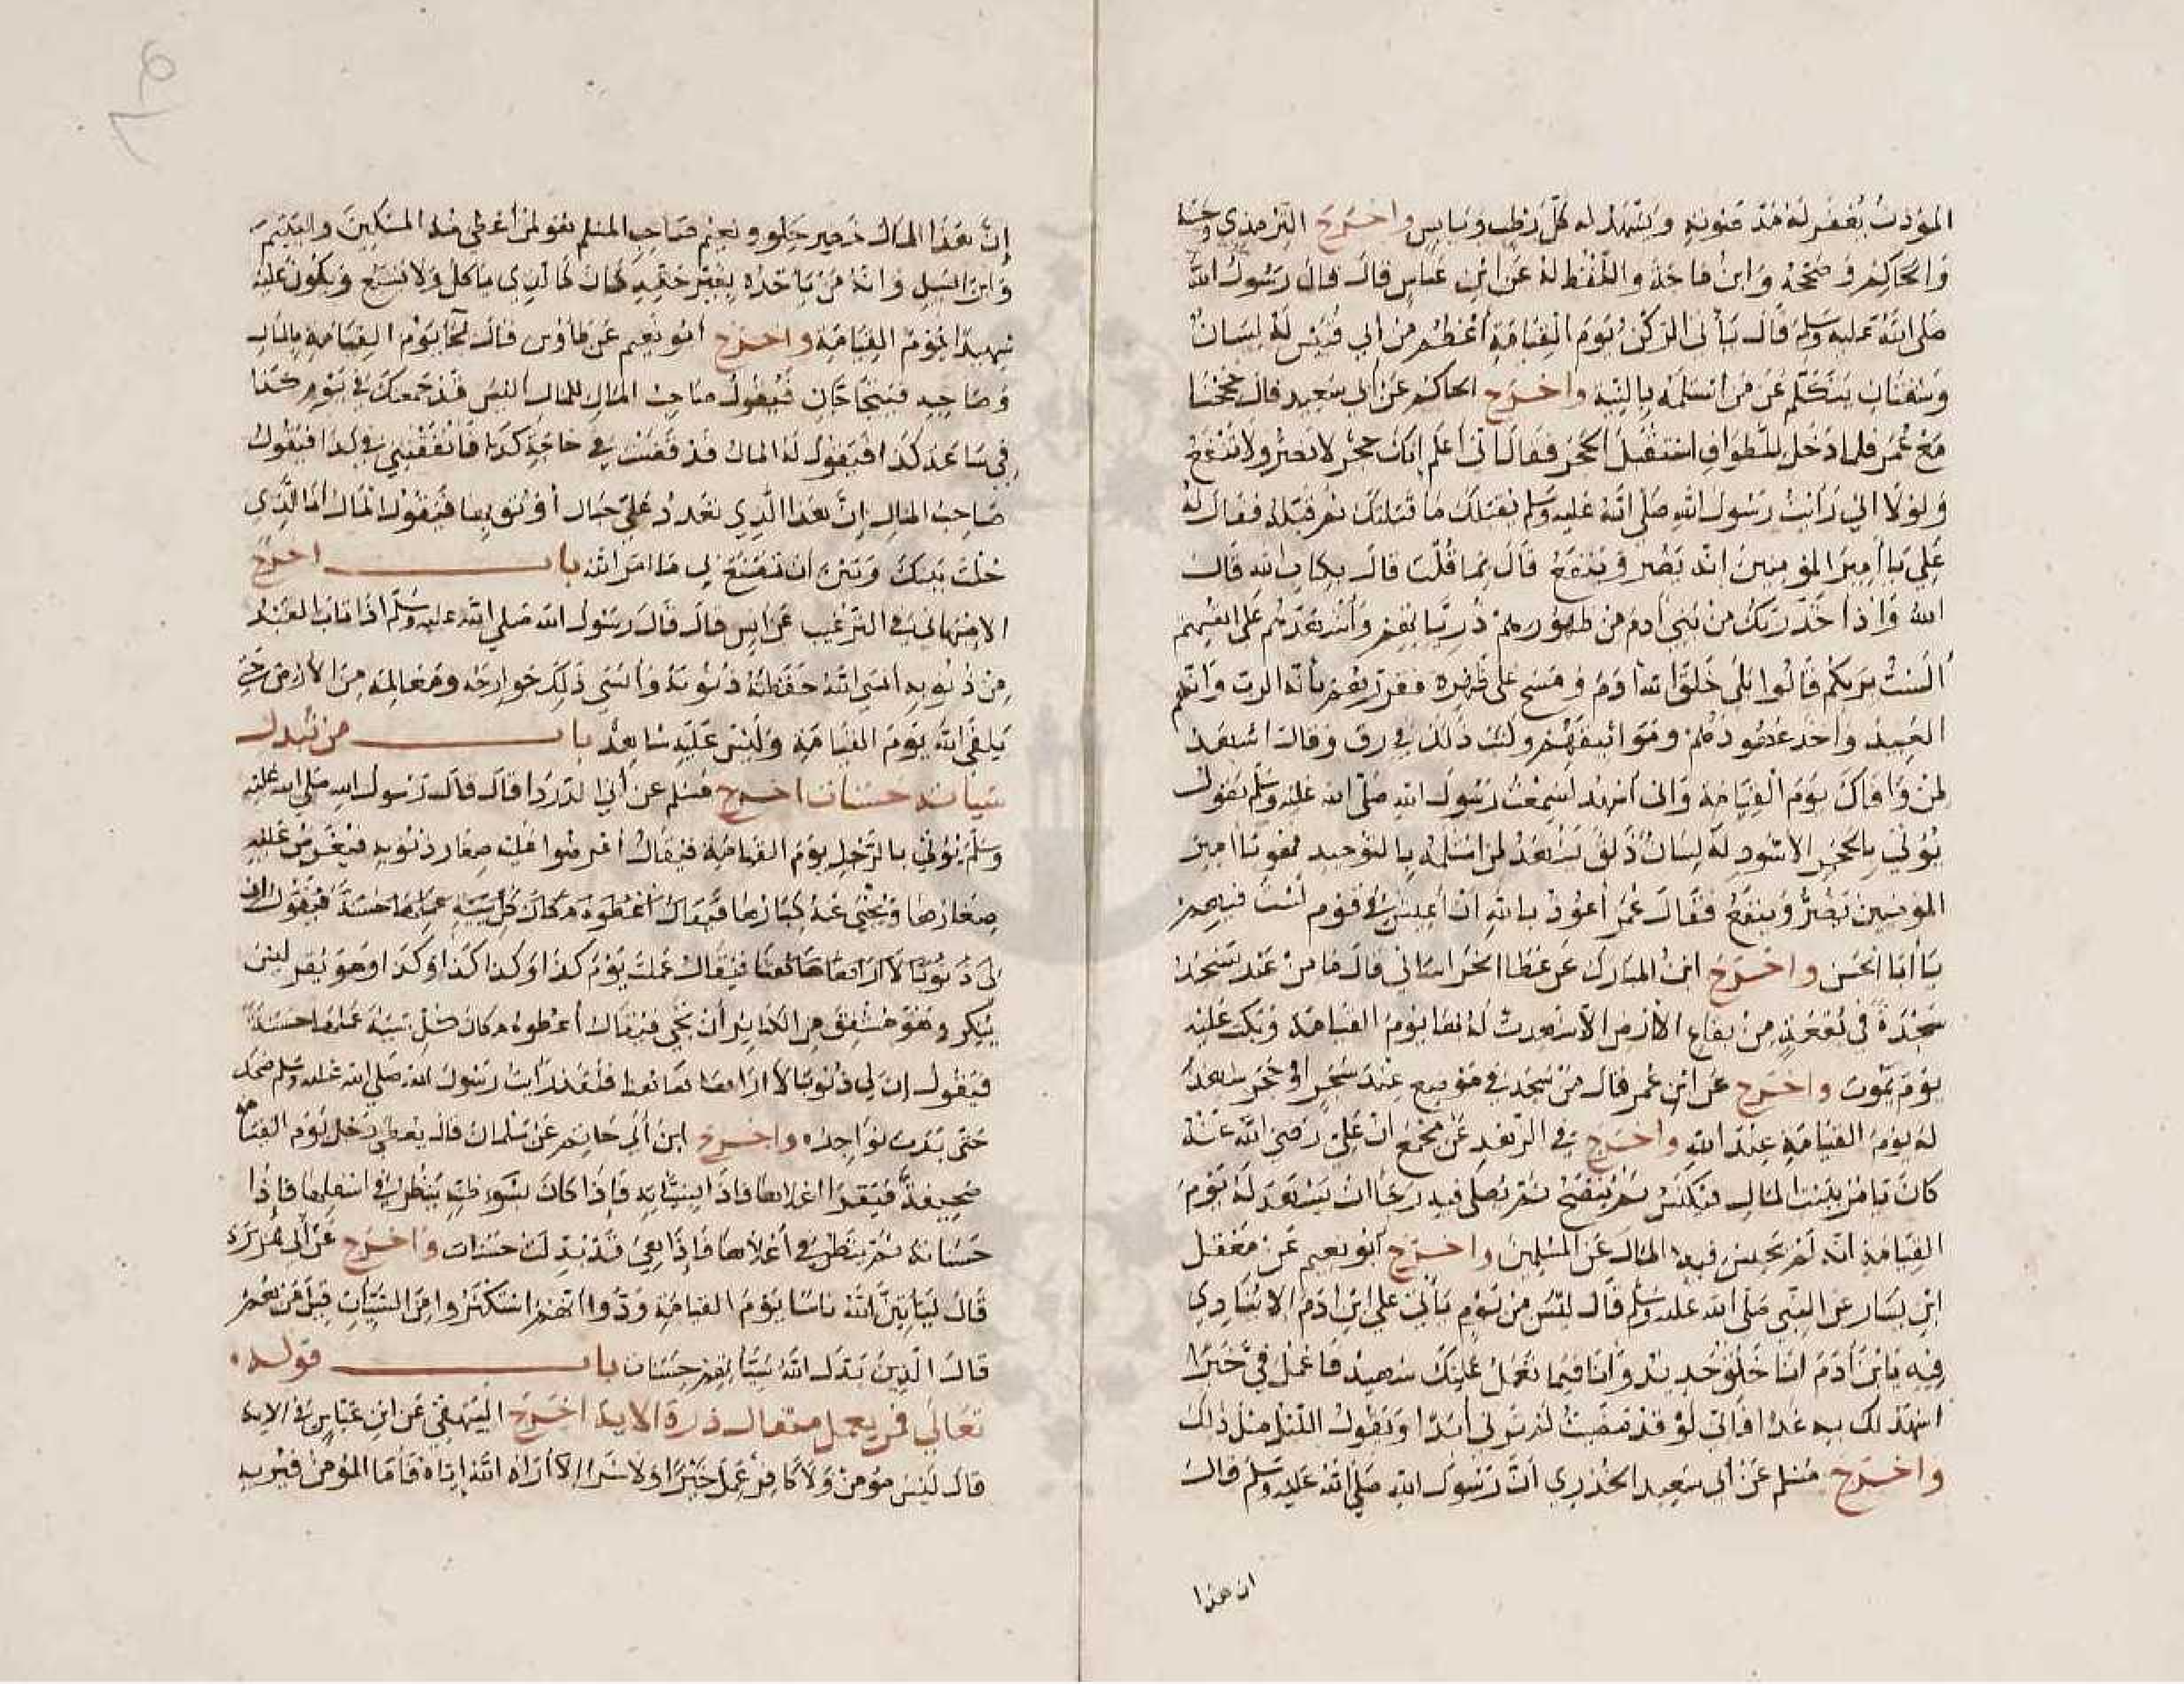 المؤذن يغفر له مد صوته ويشهد له كل رطب ويابس واخرج الترمذي وحسنه
والحاكم وصححه وابن ماجه واللفظ له عن ابن عباس قال قال رسول الله
صلى الله عليه وسلم قال يأتى الركن يوم القيامة أعظم من ابي قبيس له لسان
وشفتان يتكلم عن من استلمه بالنية واخرج الحاكم عن ابي سعيد قال حججنا
مع عمر فلما دخل للطواف استقبل الحجر فقال اني اعلم انك حجر لا تضر ولا تنفع
ولولا اني رأيت رسول الله صلى الله عليه وسلم يقبلك ما قبلتك ثم قبله فقال له
علي يا أمير المؤمنين انه يضر وينفع قال بما قلت قال بكتاب الله قال
الله واذ اخذ ربك من بني أدم من ظهورهم ذرياتهم وأشهدهم على انفسهم
ألست بربكم قالوا بلى خلق الله أدم ومسح على ظهره فقررهم بأنه الرب وانهم
العبيد واخذ عهودهم ومواثيقهم وكتب ذلك في رق وقال اشهد
لمن وافاك يوم القيامة وانى أشهد لسمعت رسول الله صلى الله عليه وسلم يقول
يؤتي بالحجر الاسود له لسان ذلق يشهد لمن استلمه بالتوحيد فهو يا امير
المؤمنين يضر وينفع فقال عمر أعوذ بالله ان أعيش في قوم لست فيهم
يا أبا الحسن واخرج ابن المبارك عن عطا الخراساني قال ما من عبد يسجد
سجدة في بقعة من بقاع الارض الا شهدت له بها يوم القيامة وبكت عليه
يوم يموت واخرج عن ابن عمر قال من سجد في موضع عند شجر او حجر شهد
له يوم القيامة عند الله واخرج في الزهد عن مجمع ان علي رضي الله عنه
كان يامر ببيت المال فيكنس ثم ينضح ثم يصلي فيه رجا ان يشهد له يوم
القيامة انه لم يحبس فيه المال عن المسلمين واخرج أبو نعيم عن معقل
ابن يسار عن النبي صلى الله عليه وسلم قال ليس من يوم يأتي علي ابن ادم الا ينادي
فيه يا ابن أدم انا خلق جديد وانا فيما تعمل عليك شهيد فاعمل في خيرا
اشهد لك به غدا فاني لو قد مضيت لم ترني أبدا ويقول الليل مثل ذلك
واخرج مسلم عن ابي سعيد الخدري ان رسول الله صلى الله عليه وسلم قال
ان هذا
إن هذا المال خضير حلو ونعم صاحب المسلم هو لمن أعطى منه المسكين واليتيم
وابن السبيل وانه من يأخذه بغير حقه كان كالذي يأكل ولا يشبع ويكون عليه
شهيدا يوم القيامة واخرج أبو نعيم عن طاوس قال يجا يوم القيامة بالمال
وصاحبه فيتحاجان فيقول صاحب المال للمال اليس قد جمعتك في يوم كذا
في ساعة كذا فيقول له المال قد قضيت بي حاجة كذا وانفقتني في كذا فيقول
صاحب المال إن هذا الذي تعدد علي حبال أوثق بها فيقول المال انا الذي
حلت بينك وبين ان تصنع بي ما امر الله باب اخرج
الاصبهاني في الترغيب عن انس قال قال رسول الله صلى الله عليه وسلم اذا تاب العبد
من ذنوبه انسى الله حفظته ذنوبه وأنسى ذلك جوارحه ومعالمه من الارض حتى
يلقى الله يوم القيامة وليس عليه شاهد باب من تبدل
سيأته حسنات اخرج مسلم عن أبي الدردا قال قال رسول الله صلى الله عليه
وسلم يؤتي بالرجل يوم القيامة فيقال أعرضوا عليه صغار ذنوبه فيعرض عليه
صغارها ويخبى عنه كبارها فيقال أعطوه مكان كل سيية عملها حسنة فيقول ان
لى ذنوبا لا أراها هاهنا فيقال عملت يوم كذا وكذا كذا وكذا وهو يقر ليس
ينكر وهو مشفق من الكباير أن تجي فيقال أعطوه مكان كل سيئة عملها حسنة
فيقول ان لي ذنوبا لا اراها هاهنا فلقد رأيت رسول الله صلى الله عليه وسلم ضحك
حتى بدت نواجذه واخرج ابن أبي حاتم عن سلمان قال يعطى رجل يوم القيامة
صحيفة فيقرا اعلاها فاذا سيئاته فإذا كان يسوء ظنه ينظر في اسفلها فإذا
حسناته ثم ينظر في أعلاها فإذا هي قد بدلت حسنات واخرج عن أبي هريرة
قال ليأتين الله ناسا يوم القيامة ودوا انهم استكثروا من السيئات قيل من هم
قال الذين يبدل الله سيأتهم حسنات باب قوله
تعالى فمن يعمل مثقال ذرة الاية اخرج البيهقي عن ابن عباس في الاية
قال ليس مؤمن ولا كافر عمل خيرا ولا شرا إلا أراه الله إياه فأما المؤمن فيريه